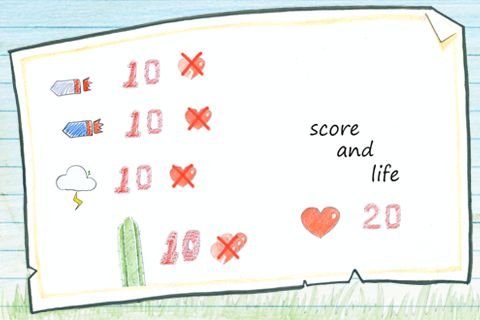 10
10
10
10
score
and
life
20